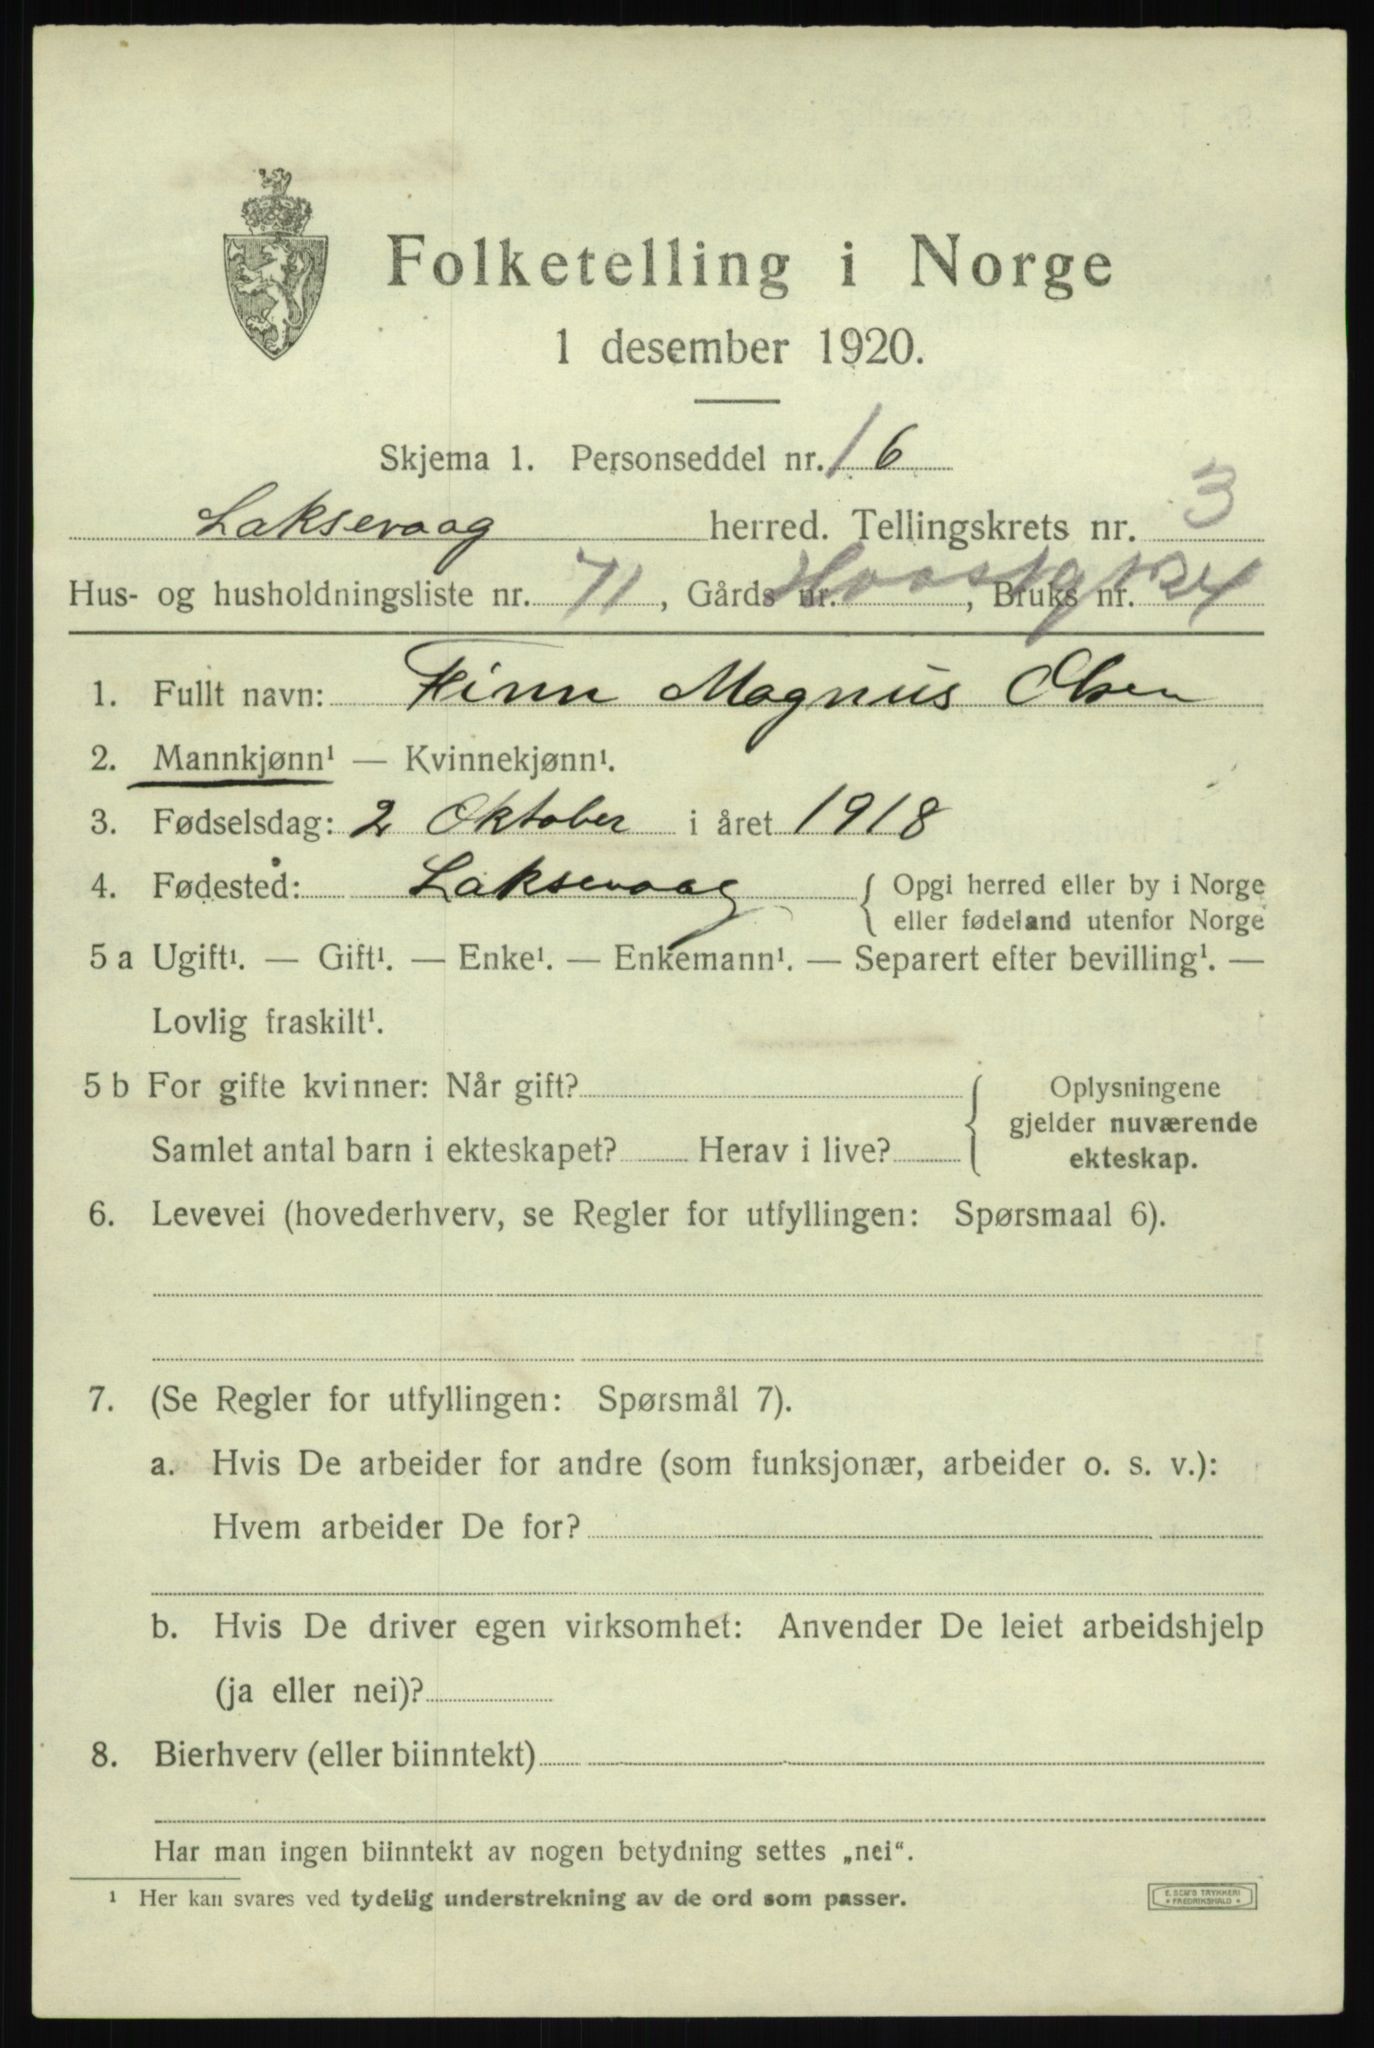 Folketelling i Norge
1 desember 1920.
Skjema 1. Personseddel nr. 16
Laksevaag herred. Tellingskrets nr. 3
Hus- og husholdningsliste nr. 71, Gårds nr. , Bruks nr.
1. Fullt navn: Finn Magnus Olsen
2. Mannkjønn¹ — Kvinnekjønn¹.
3. Fødselsdag: 2 Oktober i året 1918
4. Fødested: Laksevaag { Opgi herred eller by i Norge
eller fødeland utenfor Norge
5 a Ugift¹. — Gift¹. — Enke¹. — Enkemann¹. — Separert efter bevilling¹. —
Lovlig fraskilt¹.
5 b For gifte kvinner: Når gift? { Oplysningene
gjelder nuværende
Samlet antal barn i ekteskapet? Herav i live? ekteskap.
6. Levevei (hovederhverv, se Regler for utfyllingen: Spørsmaal 6).
7. (Se Regler for utfyllingen: Spørsmål 7).
a. Hvis De arbeider for andre (som funksjonær, arbeider o. s. v.):
Hvem arbeider De for?
b. Hvis De driver egen virksomhet: Anvender De leiet arbeidshjelp
(ja eller nei)?
8. Bierhverv (eller biinntekt)
Har man ingen biinntekt av nogen betydning settes „nei“.
¹ Her kan svares ved tydelig understrekning av de ord som passer.
E. SEM'S TRYKKERI
FREDRIKSHALD